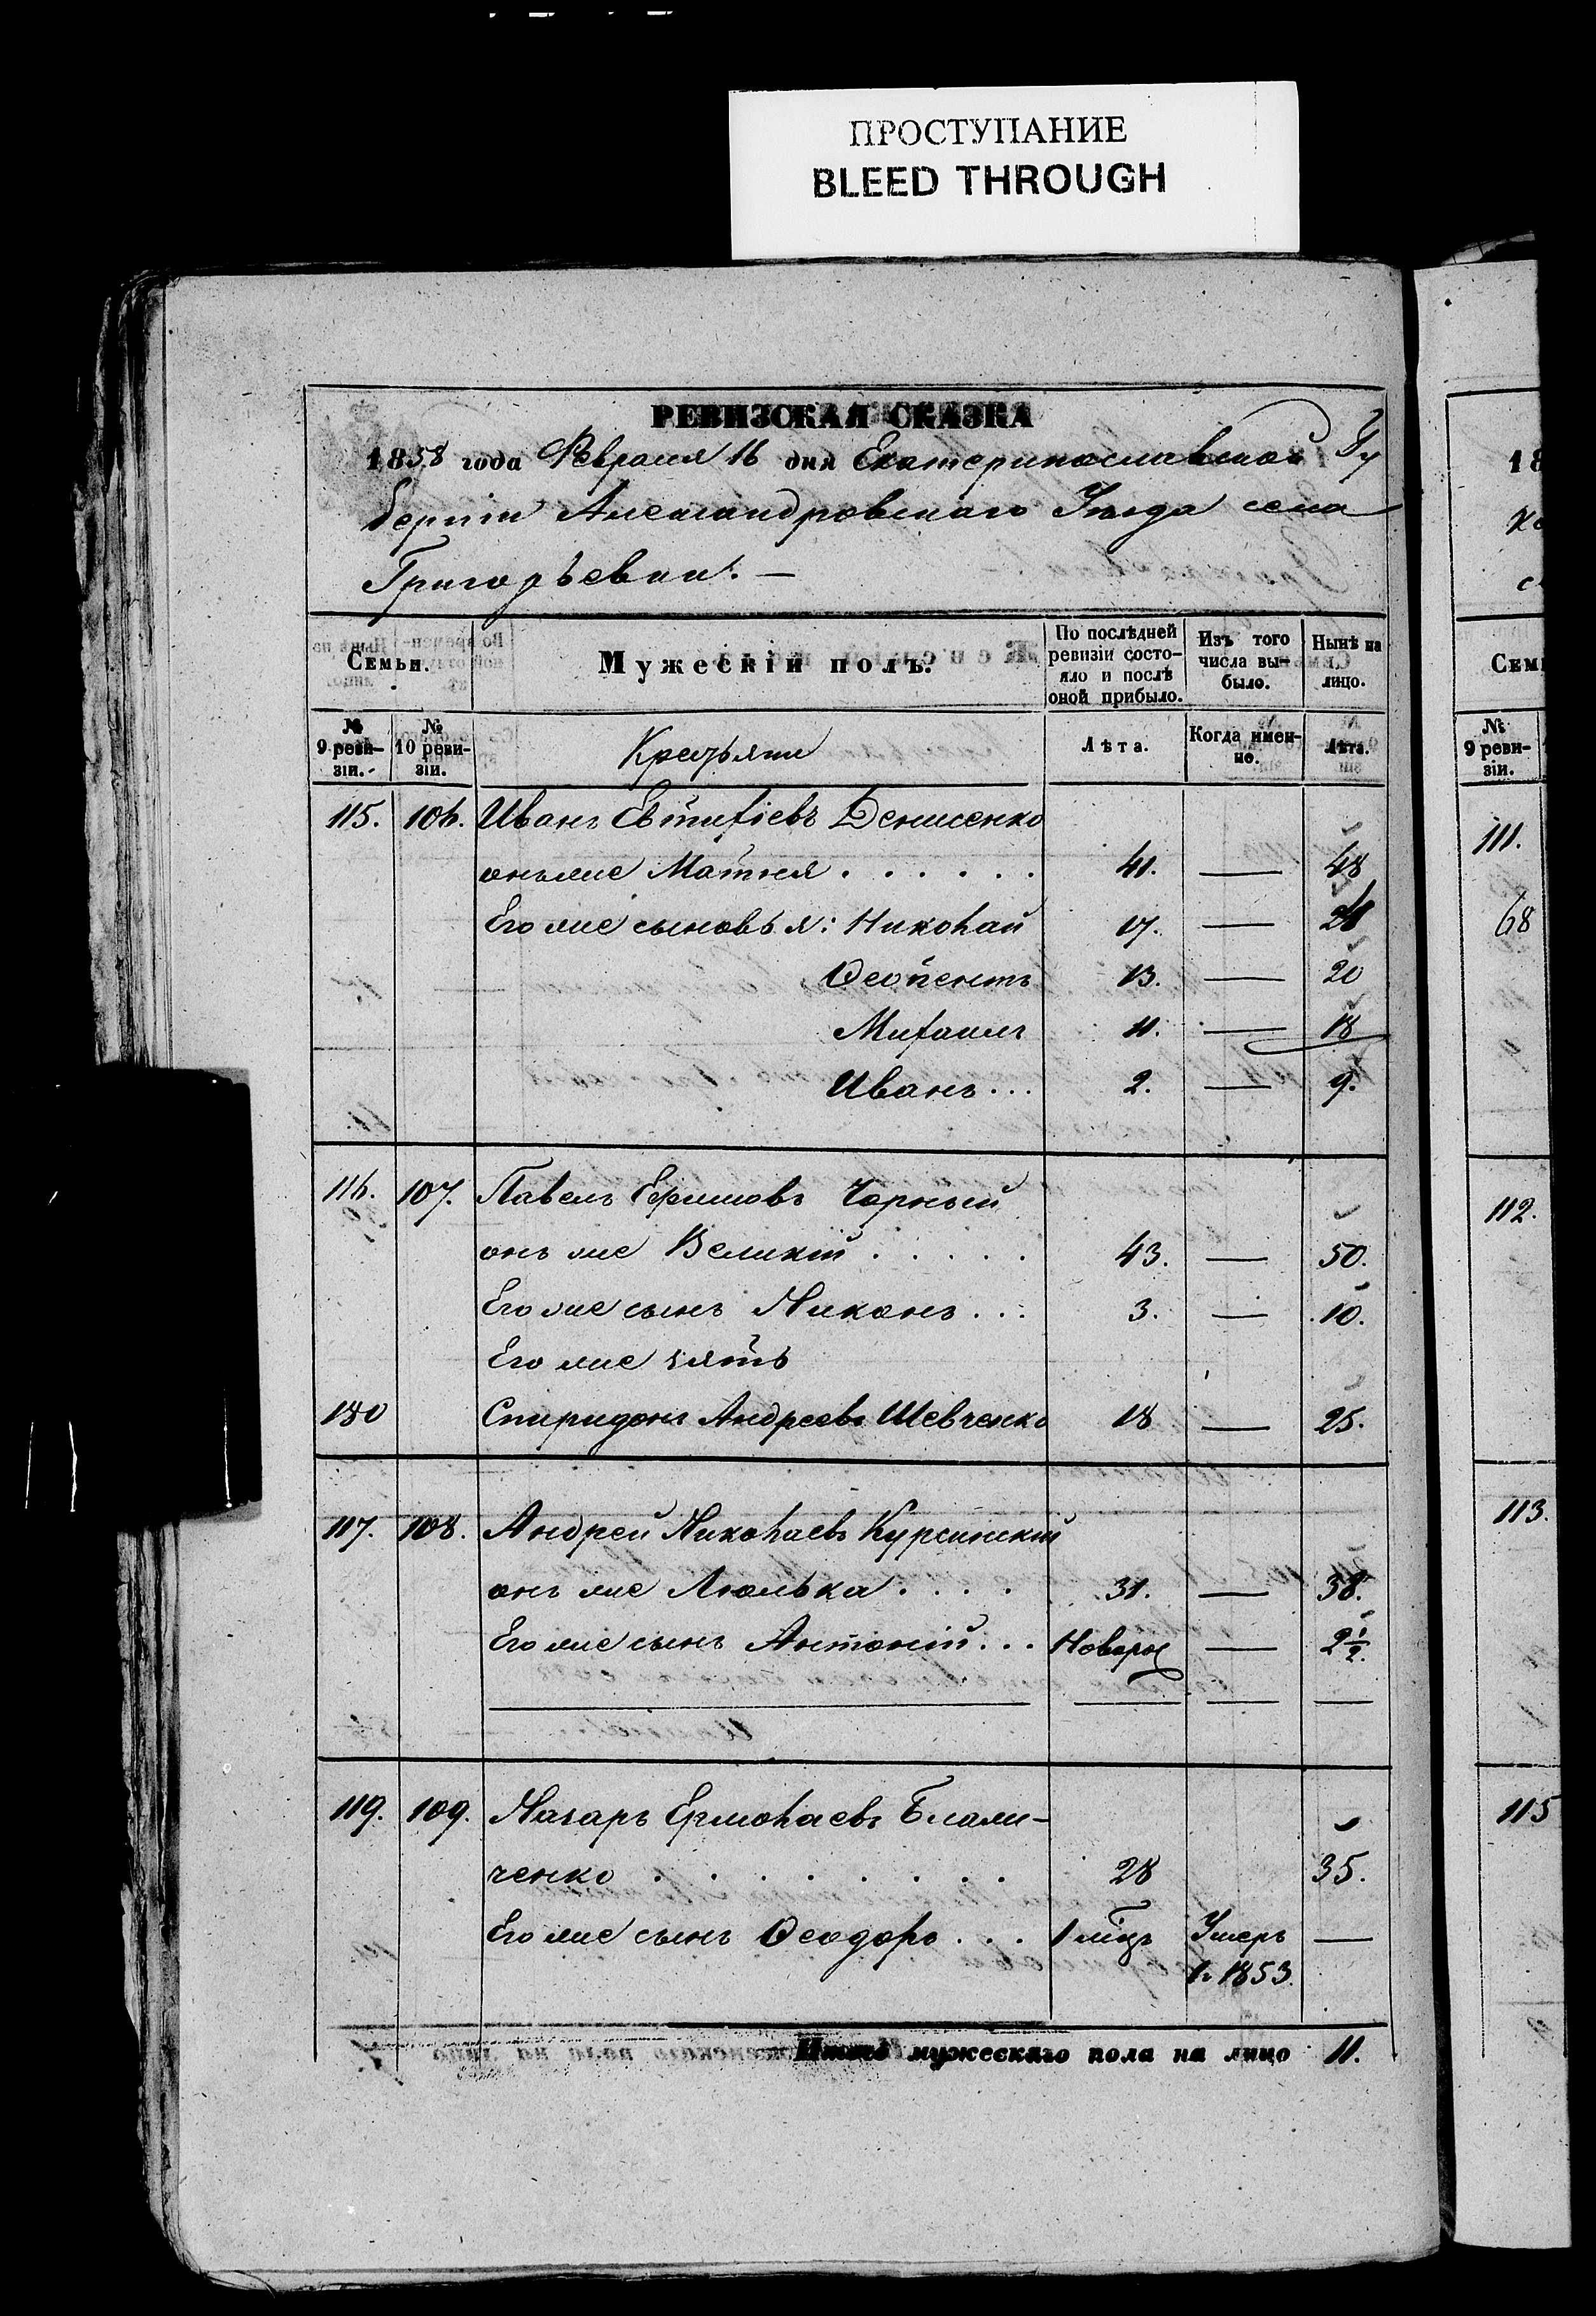 ПРОСТУПАНИЕ
BLEED THROUGH
РЕВИЗСКАЯ СКАЗКА
1858 года Февраля 16 дня Екатеринославской Гу
берніи Александровскаго Уѣзда села
Григорьевки. —
Семьи. Мужескій полъ. По послѣдней ревизіи состояло и послѣ оной прибыло. Изъ того числа выбыло. Нынѣ на лицо.
№ 9 реви-зіи. № 10 реви-зіи. Крестьяни Лѣта. Когда имен-но. Лѣта.
115. 106. Иванъ Евтифіевъ Денисенко
онъ же Матня . . . . . . 41. — 48
Его же сыновья: Николай 17. — 24
Ѳеопентъ 13. — 20
Михаилъ 11. — 18
Иванъ . . . 2. — 9.
116. 107. Павелъ Ефимовъ Чорный
онъ же Великій . . . . . 43. — 50.
Его же сынъ Никонъ . . . 3. — 10.
Его же зять
180 Спиридонъ Андреевъ Шевченко 18 — 25.
117. 108. Андрей Николаевъ Курсинскій
онъ же Люлька . . . . 31. — 38.
Его же сынъ Антоній . . . Новорж — 2 1/2.
119. 109. Назаръ Ермолаевъ
ченко . . . . . . . . 28 35.
Его же сынъ Ѳеодоръ . . . 1 мѣцъ Умеръ —
1853.
Итого мужескаго пола на лицо 11.
18
Сем
№
9 реви-
зіи.
111.
68
112.
113.
115